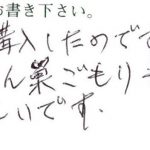 お書き下さい。
購入したのでで
ん巣ごもり
いです。